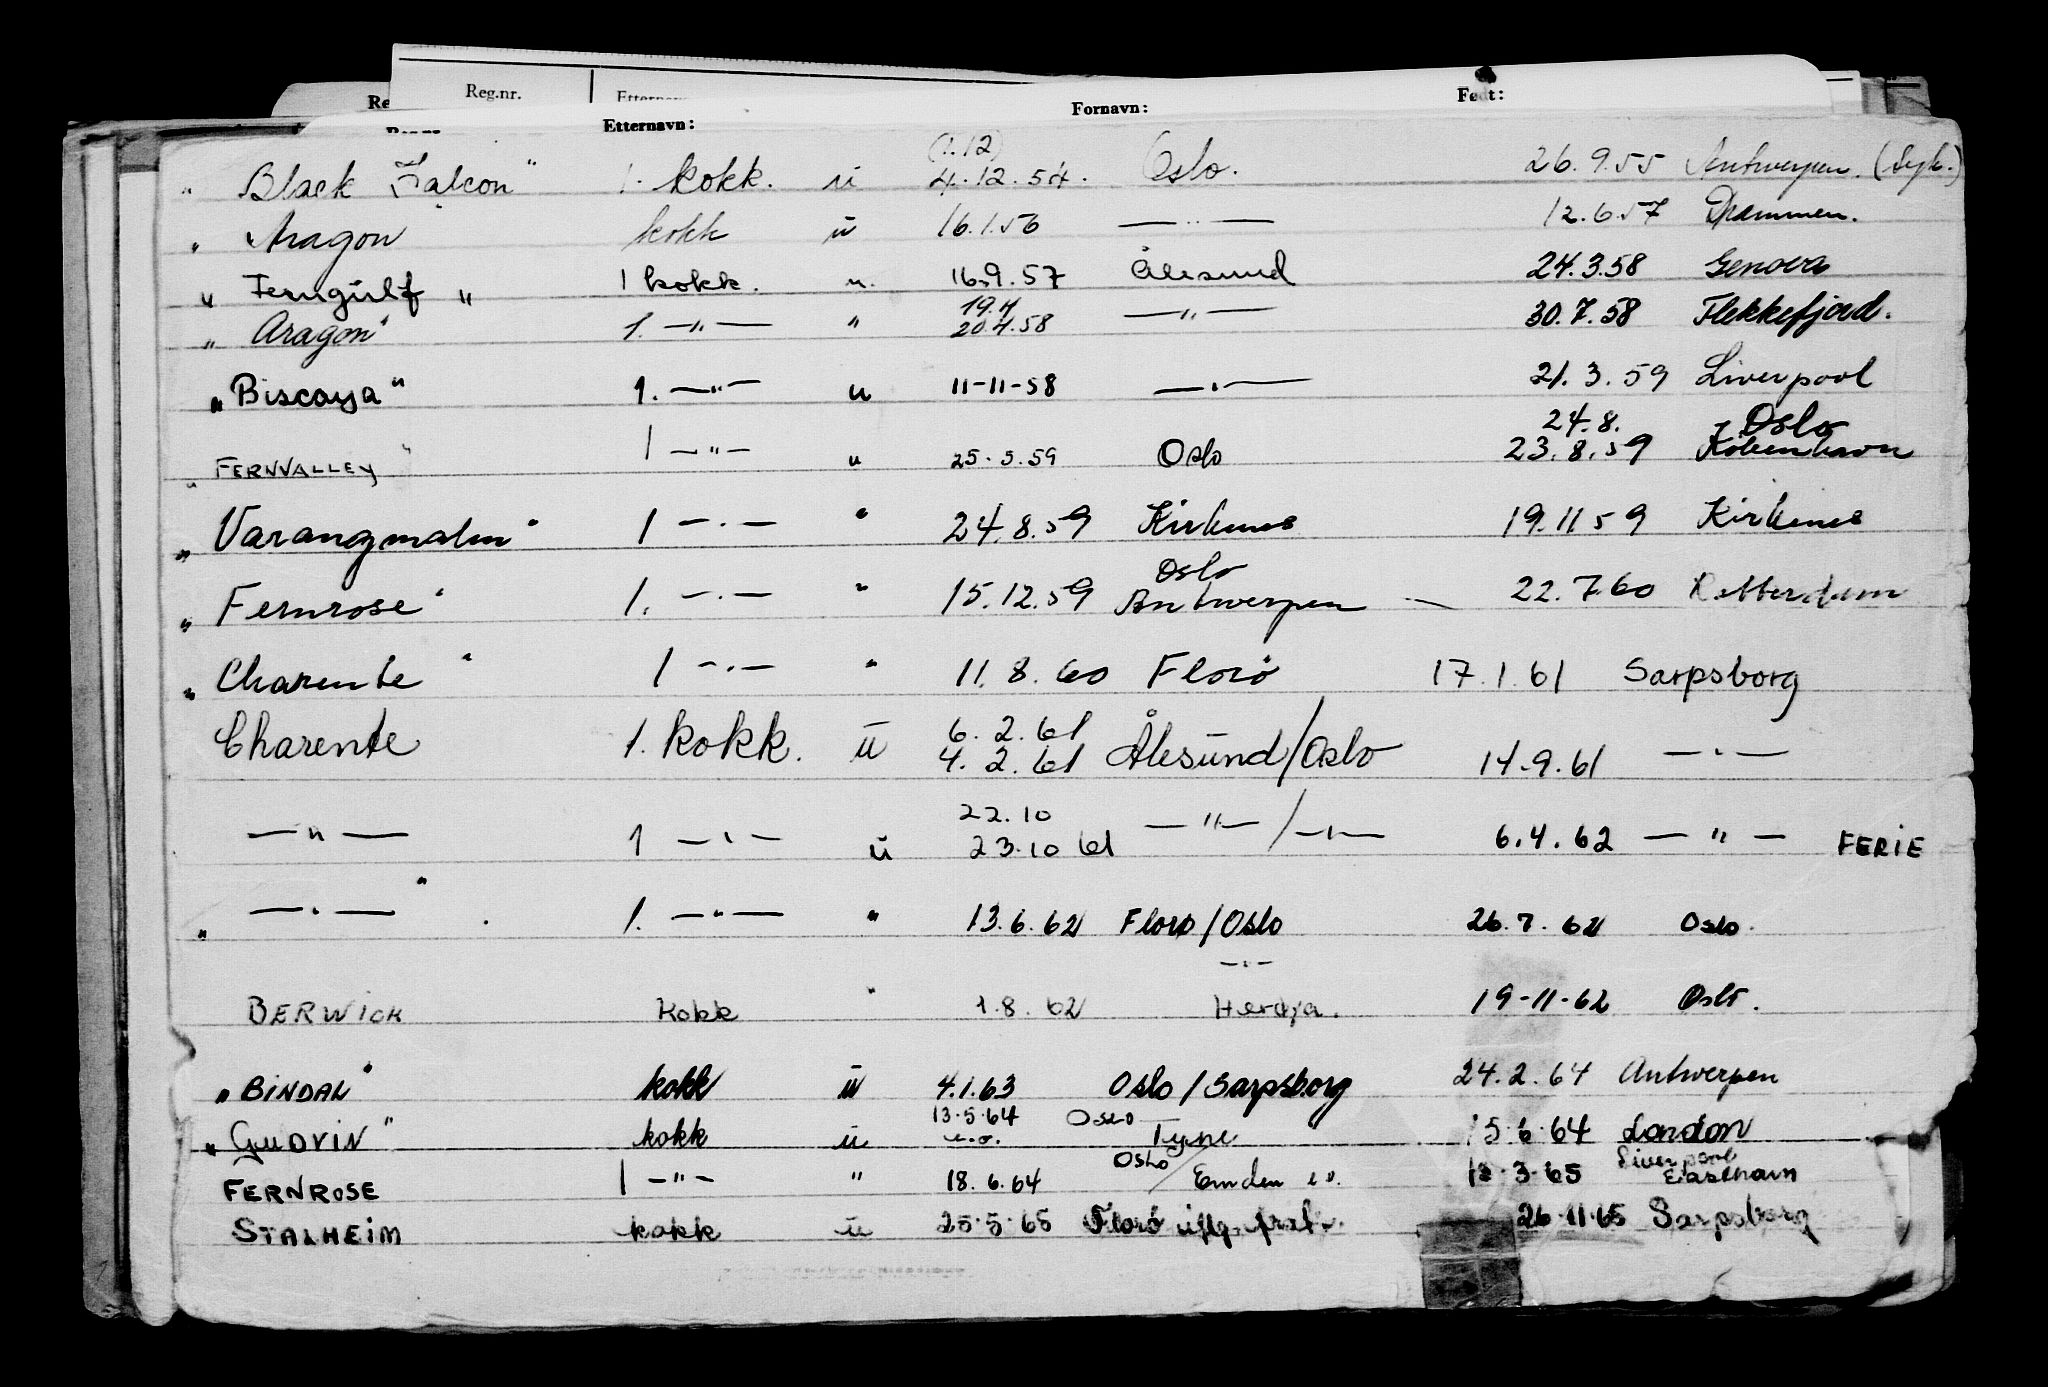 Reg.nr. Etternavn
Etternavn: Fornavn: Født:
(1.12)
" Black Falcon" 1. kokk. u 4.12.54. Oslo. 26.9.55 Antwerpen. (syk.)
" Aragon kokk u 16.1.56 — " — 12.6.57 Drammen.
" Ferngulf " 1 kokk. u. 16.9.57 Ålesund 24.3.58 Genova
19.4
" Aragon" 1. — " — " 20.4.58 — " — 30.7.58 Flekkefjord.
" Biscaya " 1. — " — u 11-11-58 — " — 21.3.59 Liverpool
24.8. - Oslo
" FERNVALLEY " 1 — " — u 25.5.59 Oslo 23.8.59 København
" Varangmalm " 1 — " — " 24.8.59 Kirkenes 19.11 59 Kirkenes
Oslo
" Fernrose " 1. — " — " 15.12.59 Antwerpen — 22.7.60 Rotterdam
" Charente " 1 — " — " 11.8.60 Florø 17.1.61 Sarpsborg
6.2.61
Charente 1. kokk. u 4.2.61 Ålesund/Oslo 14.9.61 — " —
22.10
— " — 1 — " — u 23.10 61 — " — / — " — 6.4.62 — " — FERIE
" — " — " 1. — " — " 13.6.62 Florø/Oslo 26.7.62 Oslo.
— " —
BERWICK Kokk " 1.8.62 Herøya. 19-11-62 Oslo.
" BINDAL " kokk u 4.1.63 Oslo / Sarpsborg 24.2.64 Antwerpen
13.5.64 Oslo
" GUDVIN " kokk u Tyne 15.6.64 London
Oslo / Liverpool
FERNROSE 1 — " — " 18.6.64 Emden 3.65 Eastham
STALHEIM kokk u 25.5.65 Florø 26.11.65 Sarpsborg